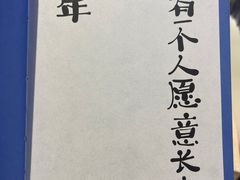 有一个人愿意长
年